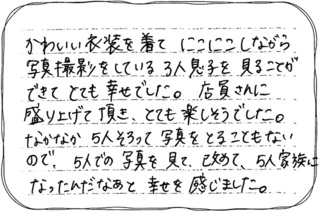 かわいい衣装を着て にこにこしながら
写真撮影をしている 3人息子を 見ることが
できて とても 幸せでした。 店員さんに
盛り上げて 頂き、とても 楽しそうでした。
なかなか 5人そろって 写真を とることもない
ので、5人での 写真を 見て、改めて、5人家族に
なったんだなあと 幸せを 感じました。